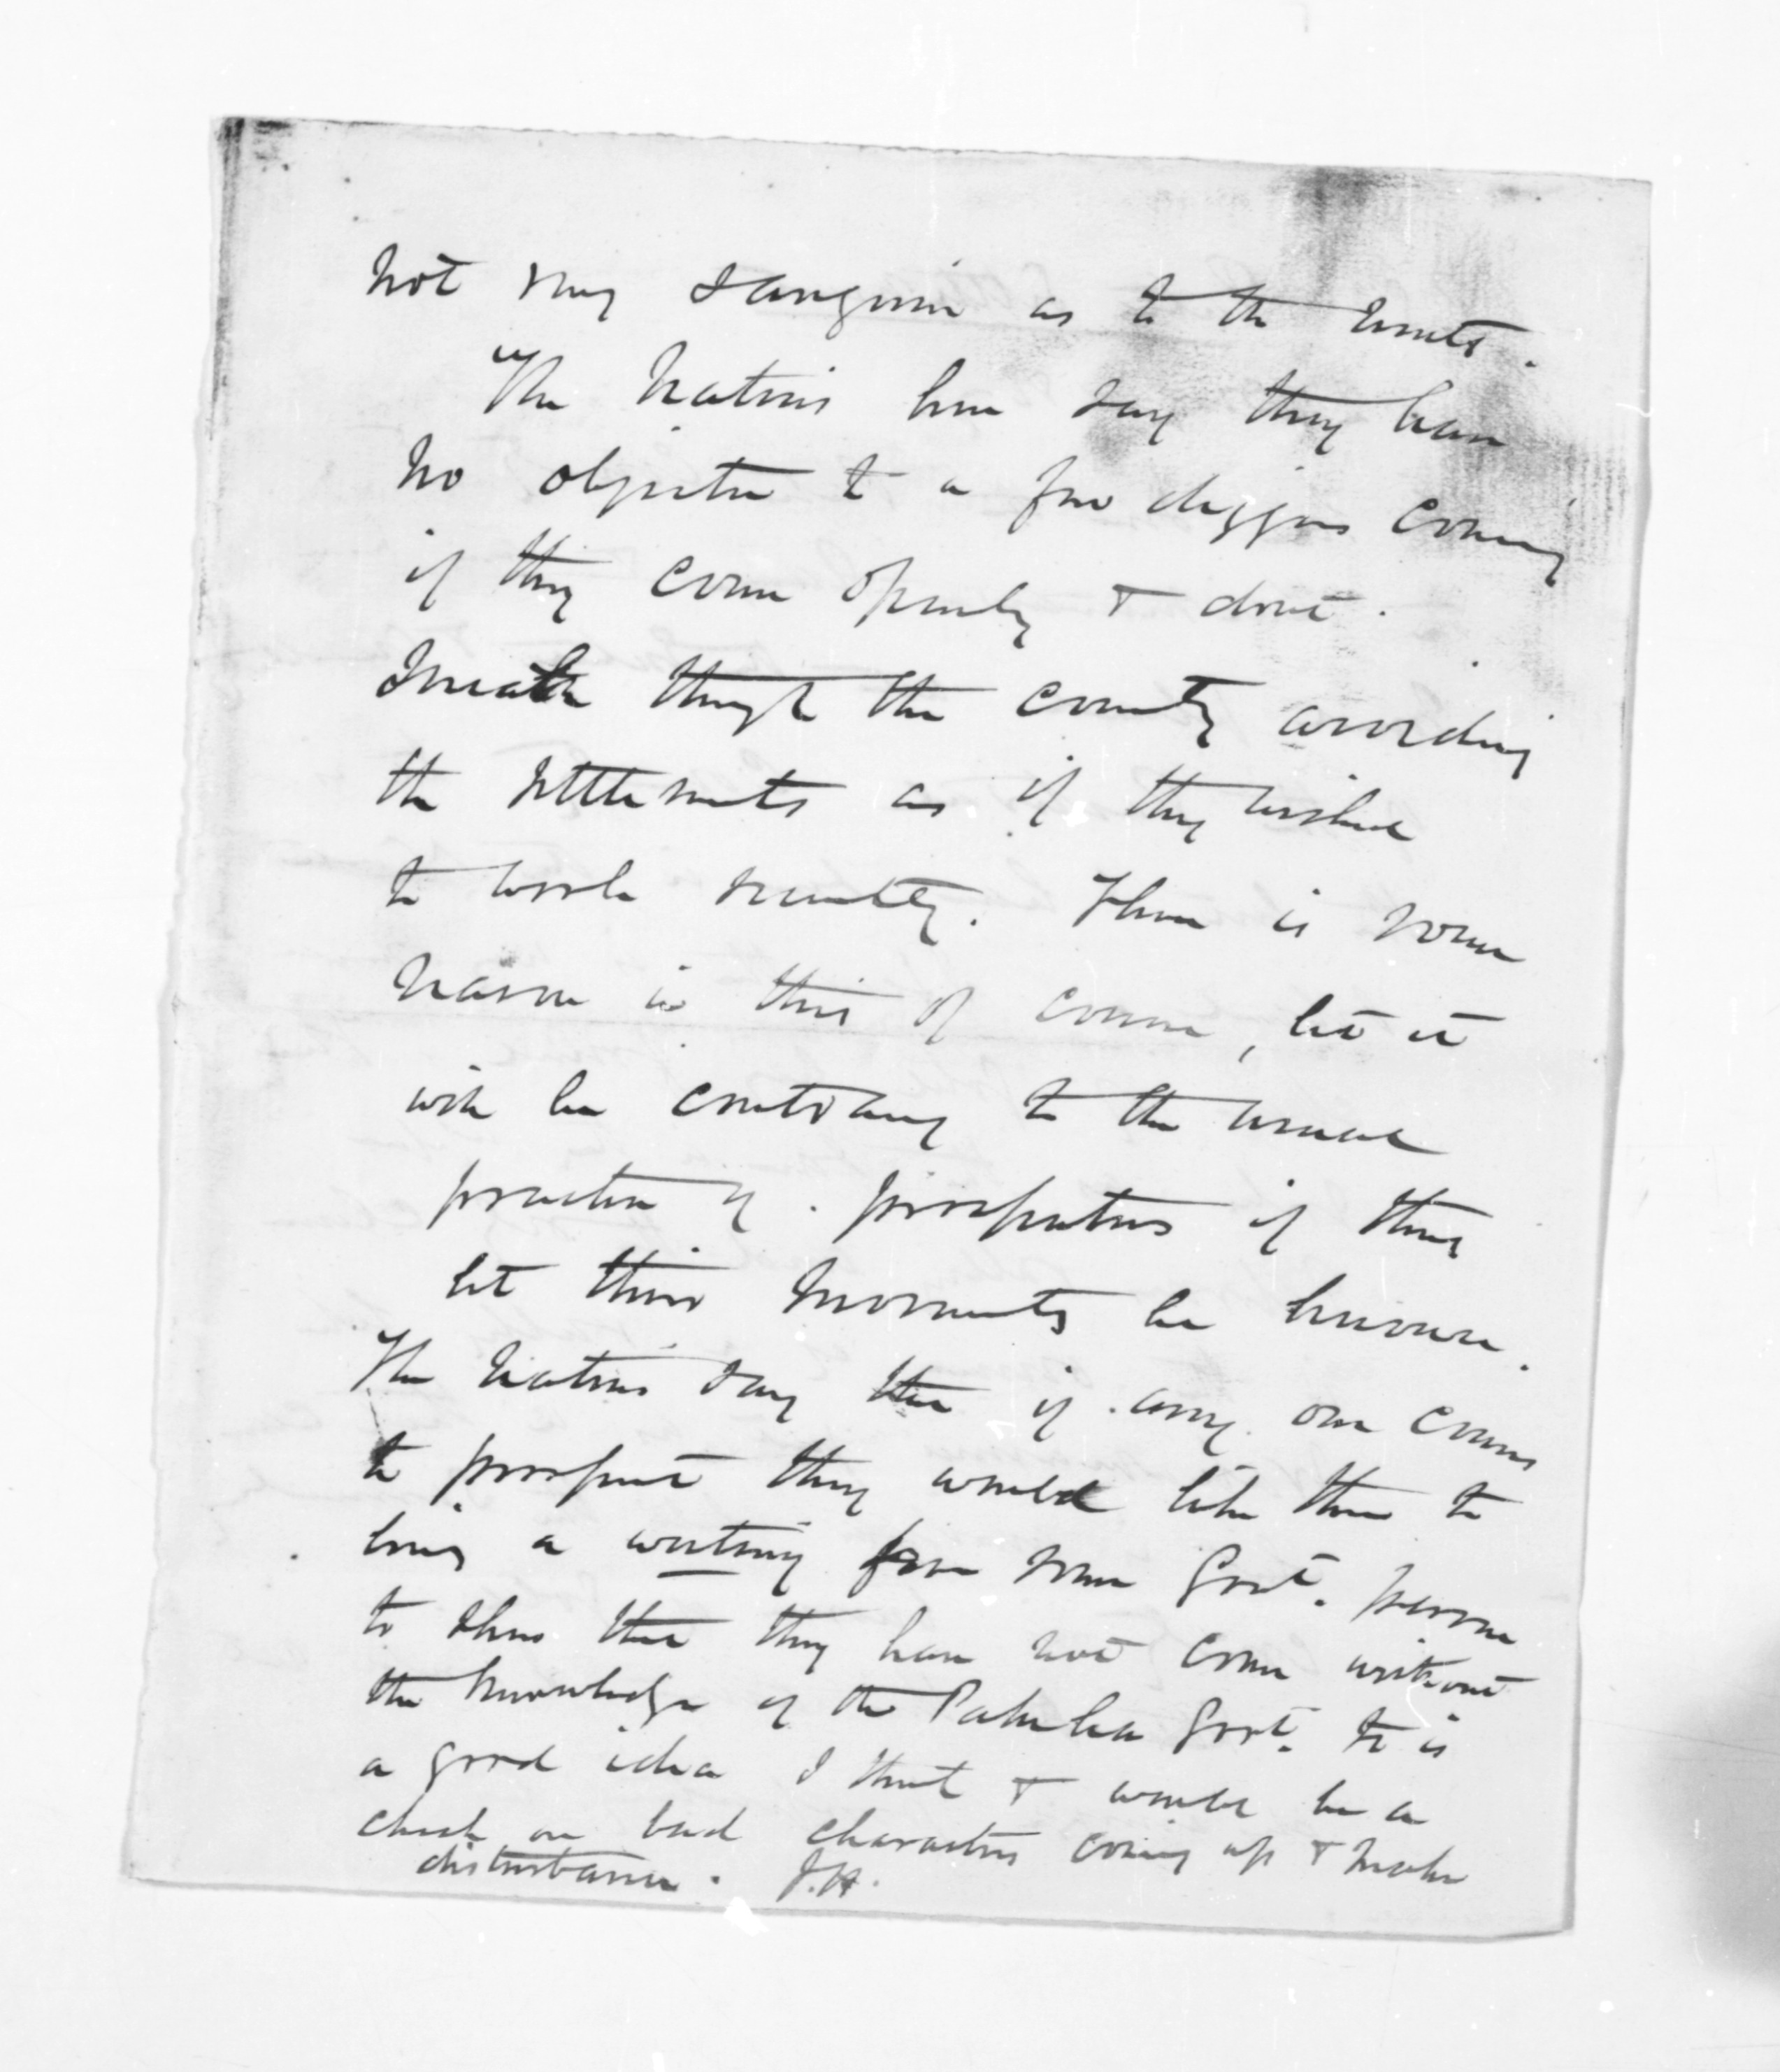 not very sanguine as to the results.
The Natives here say they have
no objection to a few diggers coming
if they come openly & dont.
Sneak through the country avoiding
the settlements as if they wished
to work secretly. There is some
reason in this of course, but it
will be contrary to the usual
practice of prospectors if they
let their movements be known.
The Natives say that if any one comes
to prospect they would like them to
bring a writing from some Govt. person
to show that they have not come without
the knowledge of the Pakeha Govt. It is
a good idea I think & would be a
check on bad characters coming up & make
disturbance. J.H.